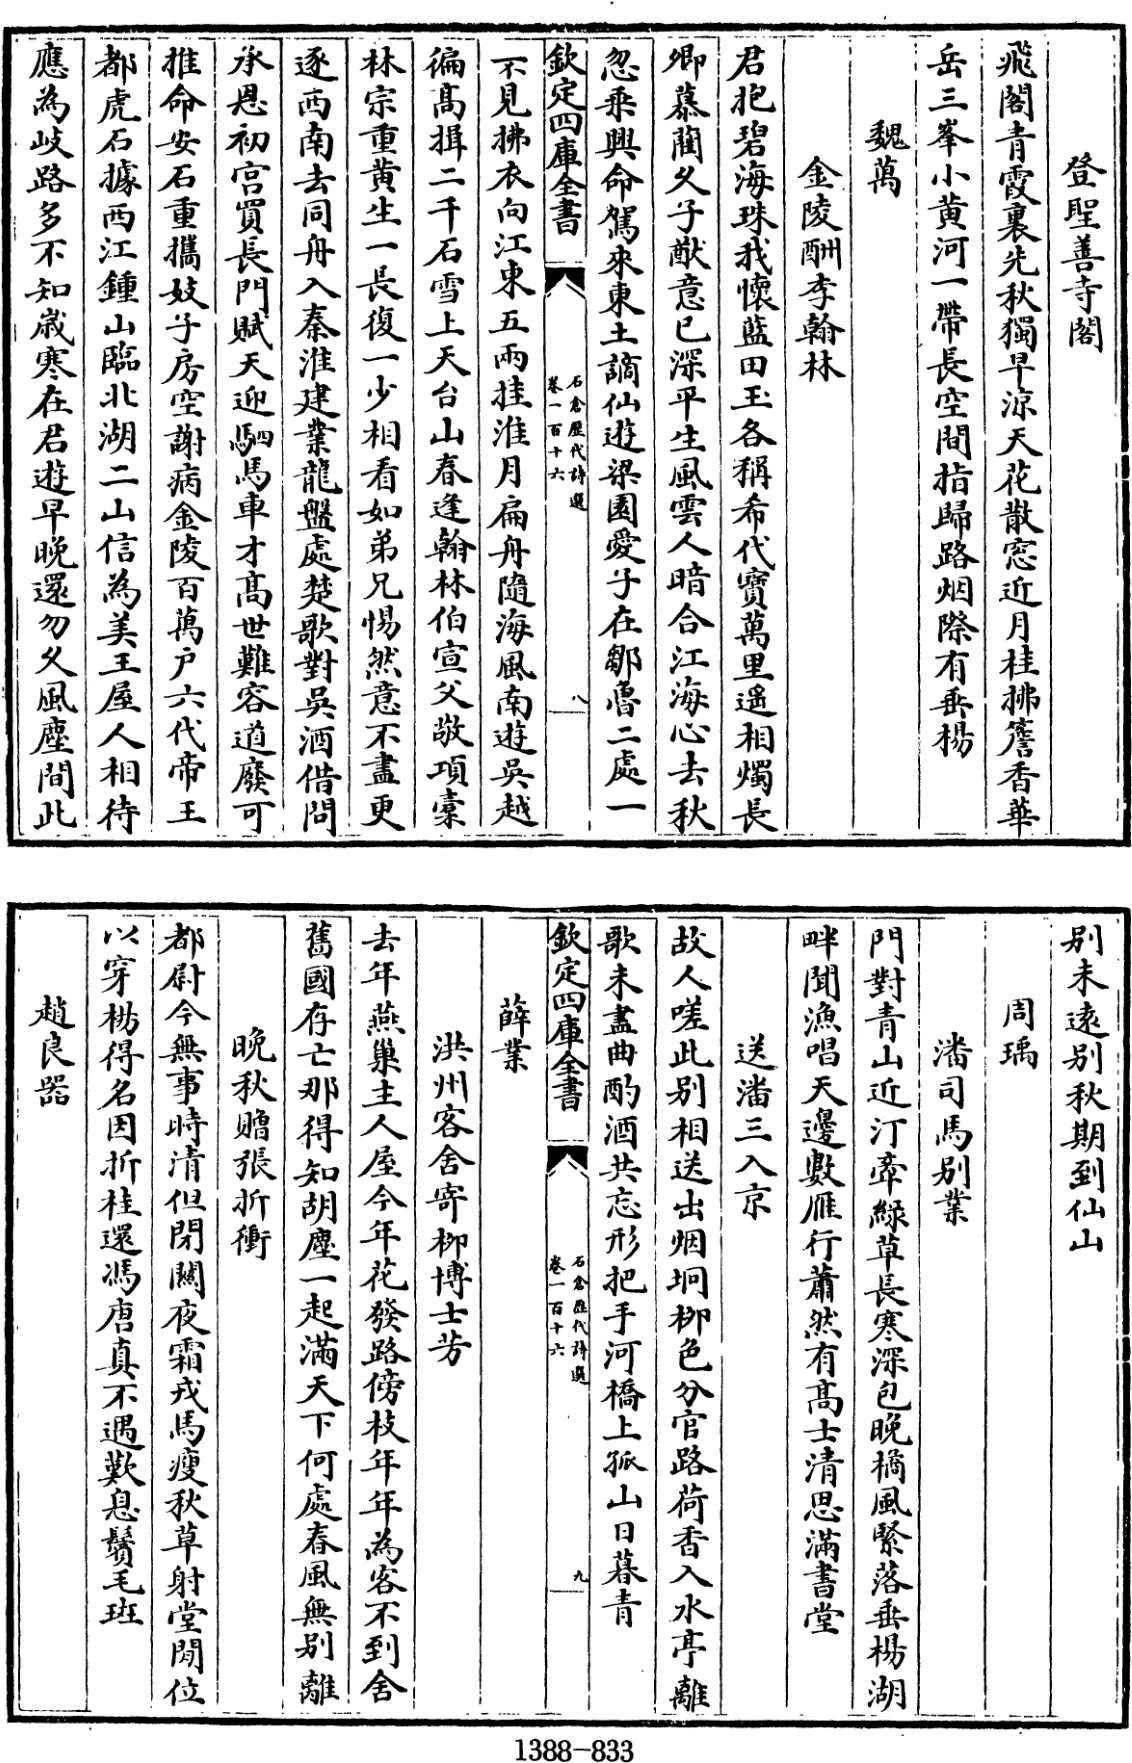 登聖善寺閣
飛閣青霞裏先秋獨早涼天花散窓近月桂拂簷香華
岳三峯小黄河一帶長空間指歸路烟際有垂楊
魏萬
金陵酬李翰林
君抱碧海珠我懷藍田玉各稱希代寶萬里遥相燭長
卿慕藺久子猷意已深平生風雲人暗合江海心去秋
忽乗興命駕來東土謫仙遊梁園愛子在鄒魯二處一
欽定四庫全書
石倉歷代詩選
卷一百十六
八
不見拂衣向江東五兩挂淮月扁舟隨海風南遊吳越
徧髙揖二千石雪上天台山春逢翰林伯宣父敬項橐
林宗重黄生一長復一少相看如弟兄惕然意不盡更
逐西南去同舟入秦淮建業龍盤處楚歌對吳酒借問
承恩初宫買長門賦天迎駟馬車才髙世難容道廢可
推命安石重攜妓子房空謝病金陵百萬户六代帝王
都虎石據西江鍾山臨北湖二山信為美王屋人相待
應為岐路多不知嵗寒在君遊早晚還勿久風塵間此
别未遠别秋期到仙山
周瑀
潘司馬别業
門對青山近汀牽緑草長寒深包晚橘風緊落垂楊湖
畔聞漁唱天邊數雁行蕭然有髙士清思滿書堂
送潘三入京
故人嗟此别相送出烟坰栁色分官路荷香入水亭離
歌未盡曲酌酒共忘形把手河橋上孤山日暮青
欽定四庫全書
石倉歷代詩選
卷一百十六
九
薛業
洪州客舍寄栁博士芳
去年燕巢主人屋今年花發路傍枝年年為客不到舍
舊國存亡那得知胡塵一起滿天下何處春風無别離
晚秋贈張折衝
都尉今無事時清但閉闗夜霜戎馬瘦秋草射堂閒位
以穿楊得名因折桂還馮唐真不遇歎息鬢毛斑
趙良器
1388-833